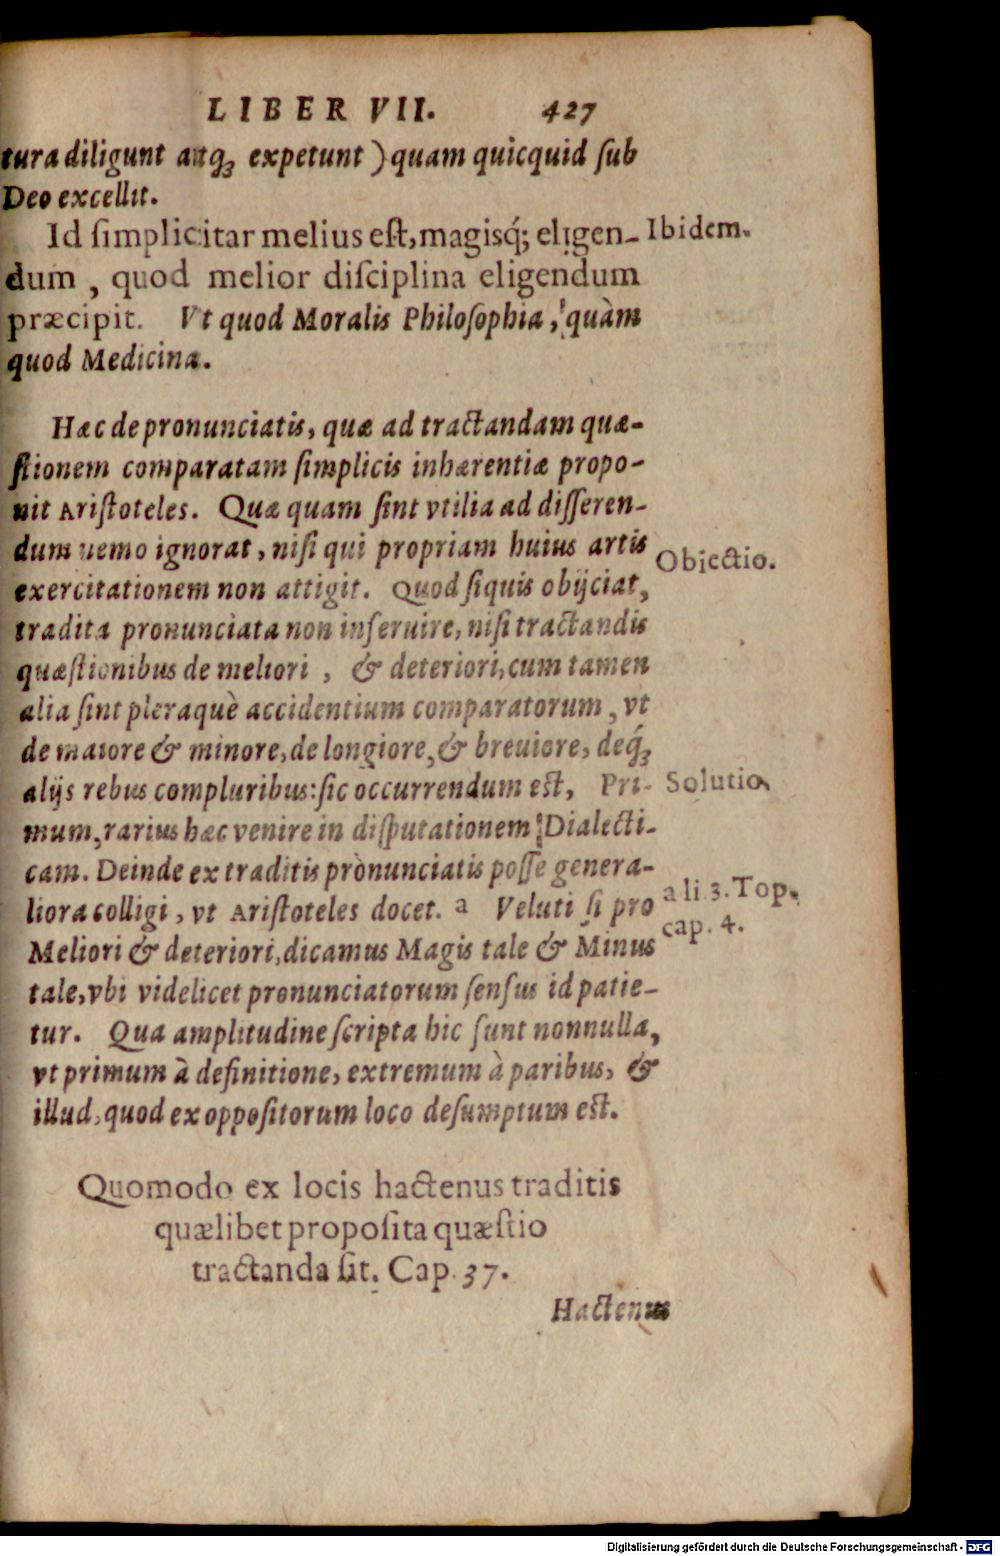 LIBER VII. 427
tura diligunt atq́; expetunt ) quam quicquid ſub
Deo excellit.
Id ſimplicitar melius eſt, magisq́; eligen- Ibidem.
dum , quod melior diſciplina eligendum
præcipit. Vt quod Moralis Philoſophia, quàm
quod Medicina.
Hæc de pronunciatis, quæ ad tractandam quæ-
ſtionem comparatam ſimplicis inhærentiæ propo-
nit Ariſtoteles. Quæ quam ſint vtilia ad diſſeren-
dum nemo ignorat, niſi qui propriam huius artis
Obiectio.
exercitationem non attigit. Quod ſiquis obijciat,
tradita pronunciata non inſeruire, niſi tractandis
quæſtionibus de meliori , & deteriori, cum tamen
alia ſint pleraquè accidentium comparatorum , vt
de maiore & minore, de longiore, & breuiore, deq́;
alijs rebus compluribus: ſic occurrendum eſt, Pri- Solutio.
mum, rarius hæc venire in diſputationem Dialecti-
cam. Deinde ex traditis prònunciatis poſſe genera-
liora colligi , vt Ariſtoteles docet. a Veluti ſi pro a li 3. Top.
cap. 4.
Meliori & deteriori, dicamus Magis tale & Minus
tale, vbi videlicet pronunciatorum ſenſus id patie-
tur. Qua amplitudine ſcripta hic ſunt nonnulla,
vt primum à definitione, extremum à paribus, &
illud, quod ex oppoſitorum loco deſumptum eſt.
Quomodo ex locis hactenus traditis
quælibet propoſita quæſtio
tractanda ſit. Cap. 37.
Hactenus
Digitalisierung gefördert durch die Deutsche Forschungsgemeinschaft - DFG